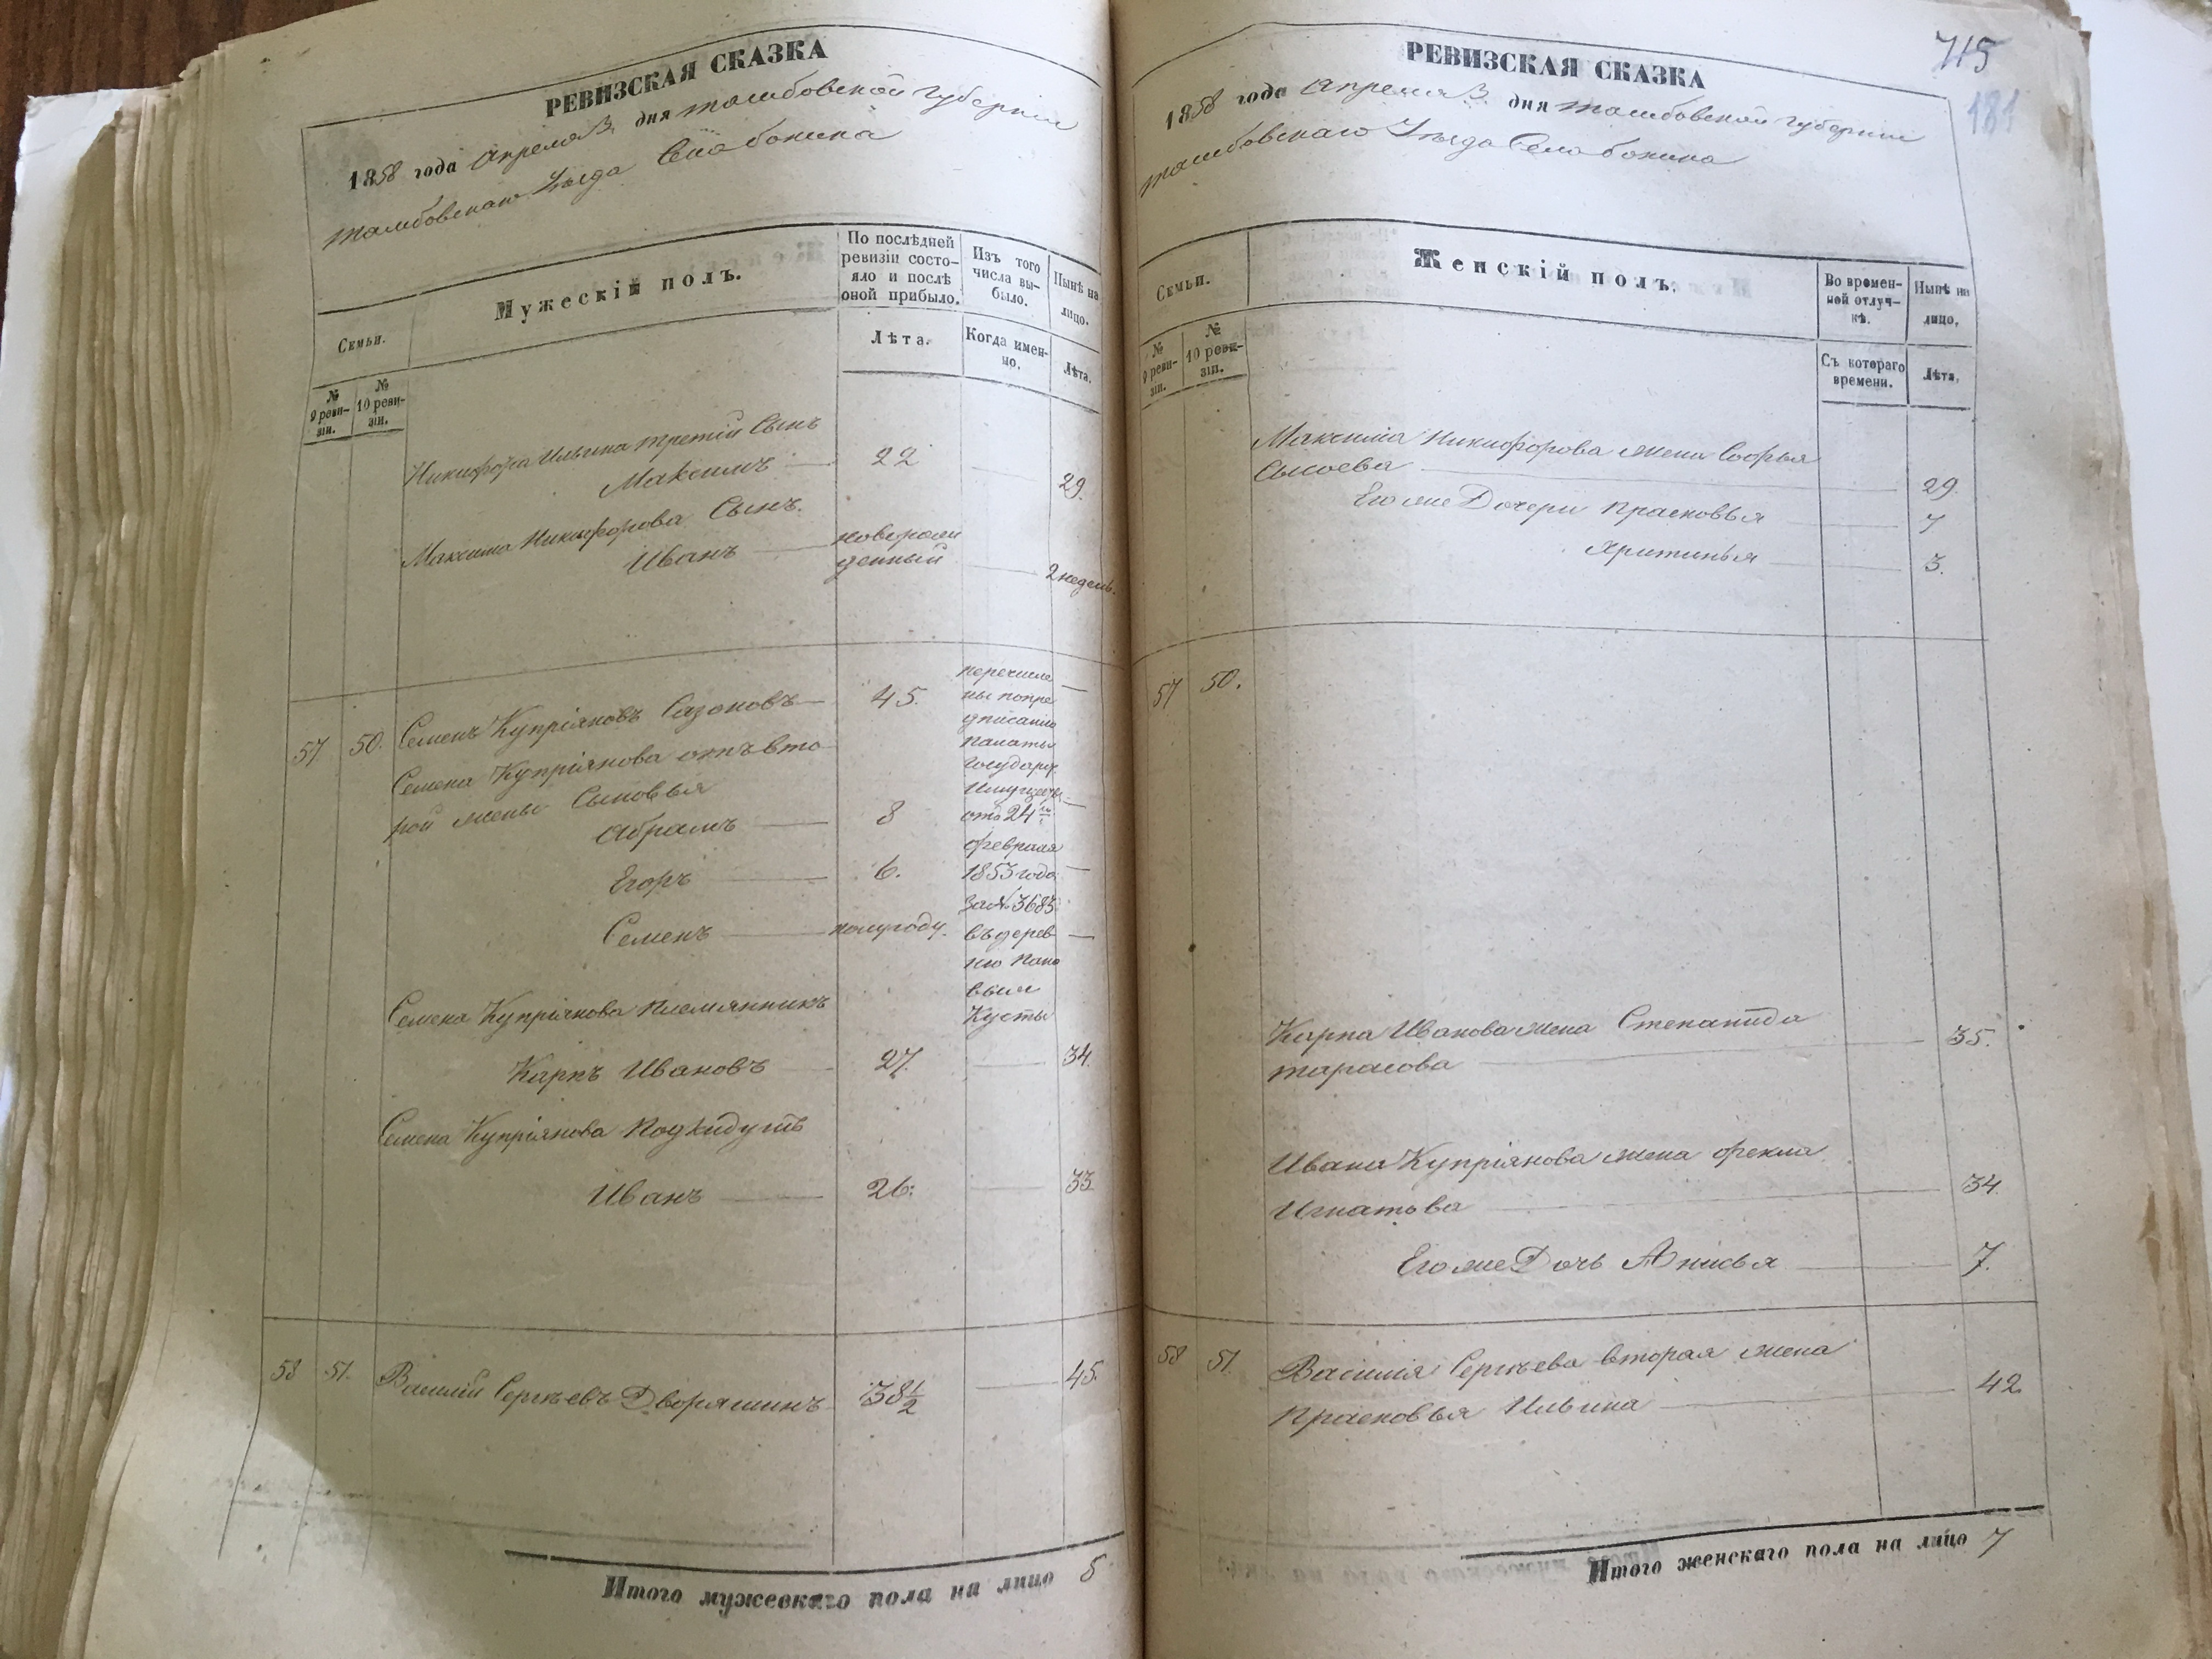 РЕВИЗСКАЯ СКАЗКА
1858 года Апреля 3 дня Тамбовской губернии
Тамбовскаго Уезда Села бокина
Семьи.
Мужескій полъ.
По послѣдней
ревизіи состо-
яло и послѣ
оной прибыло.
Изъ того
числа вы-
было.
Нынѣ на
лицо.
№
9 реви-
зіи.
№
10 реви-
зіи.
Лѣта.
Когда имен-
но.
Лѣта.
Никифора Ильина третій Сынъ
Максимъ 22 29.
Максима Никифорова Сынъ.
Иванъ новорож
денный 2 недель.
57 50. Семенъ Купріяновъ Сазоновъ 45.
Семена Купріянова отъ вто
рой жены Сыновья
Абрамъ 8
Егоръ 6.
Семенъ полугоду.
перечисле
ны попре
дписанію
Палаты
Государ.
Имуществ
отъ 24го
февраля
1853 года
за № 3683
въ дерев
ню Пано
выя
Кусты
Семена Купріянова Племянникъ
Карпъ Ивановъ 27. 34.
Семена Купріянова Подкидушъ
Иванъ 26. 33.
58 51. Василій Сергѣевъ Дворяшинъ 38 1/2 45.
Итого мужескаго пола на лицо 5
715
181
РЕВИЗСКАЯ СКАЗКА
1858 года Апреля 3 дня Тамбовской губернии
Тамбовскаго Уезда Села бокина
Семьи.
Женскій полъ.
Во времен-
ной отлуч-
кѣ.
Нынѣ на
лицо.
№
9 реви-
зіи.
№
10 реви-
зіи.
Съ котораго
времени.
Лѣта.
Максима Никифорова жена Софья
Сысоева 29.
Его же Дочери Прасковья 7
Христинья 3.
57 50.
Карпа Иванова жена Степанида
Тарасова 35.
Ивана Купріянова жена Фекла
Игнатова 34.
Его же Дочь Анисья 7.
58 51. Василія Сергѣева вторая жена
Прасковья Ильина 42
Итого женскаго пола на лицо 7